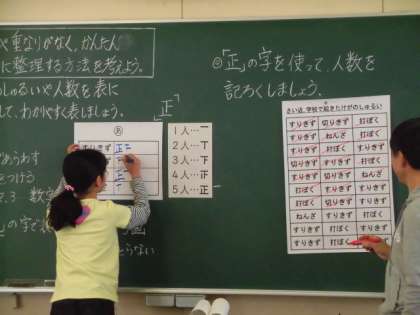 や重なりがなく、かんたん
に整理する方法を考えよう。
しゅるいや人数を表に
して、わかりやすく表しましょう。
「正」
すりきず 正
1人…一
2人…丅
3人…下
4人…𤴓
5人…正
であらわす
をつける
3 数字
」の字で
らない
◎「正」の字を使って、人数を
記ろくしましょう。
さい近、学校で起きたけがのしゅるい
すりきず 切りきず 打ぼく
すりきず ねんざ 打ぼく
切りきず 打ぼく すりきず
すりきず 切りきず すりきず
切りきず 切りきず すりきず
打ぼく すりきず 切りきず
打ぼく 切りきず 打ぼく
ねんざ すりきず 打ぼく
すりきず すりきず すりきず
すりきず 打ぼく